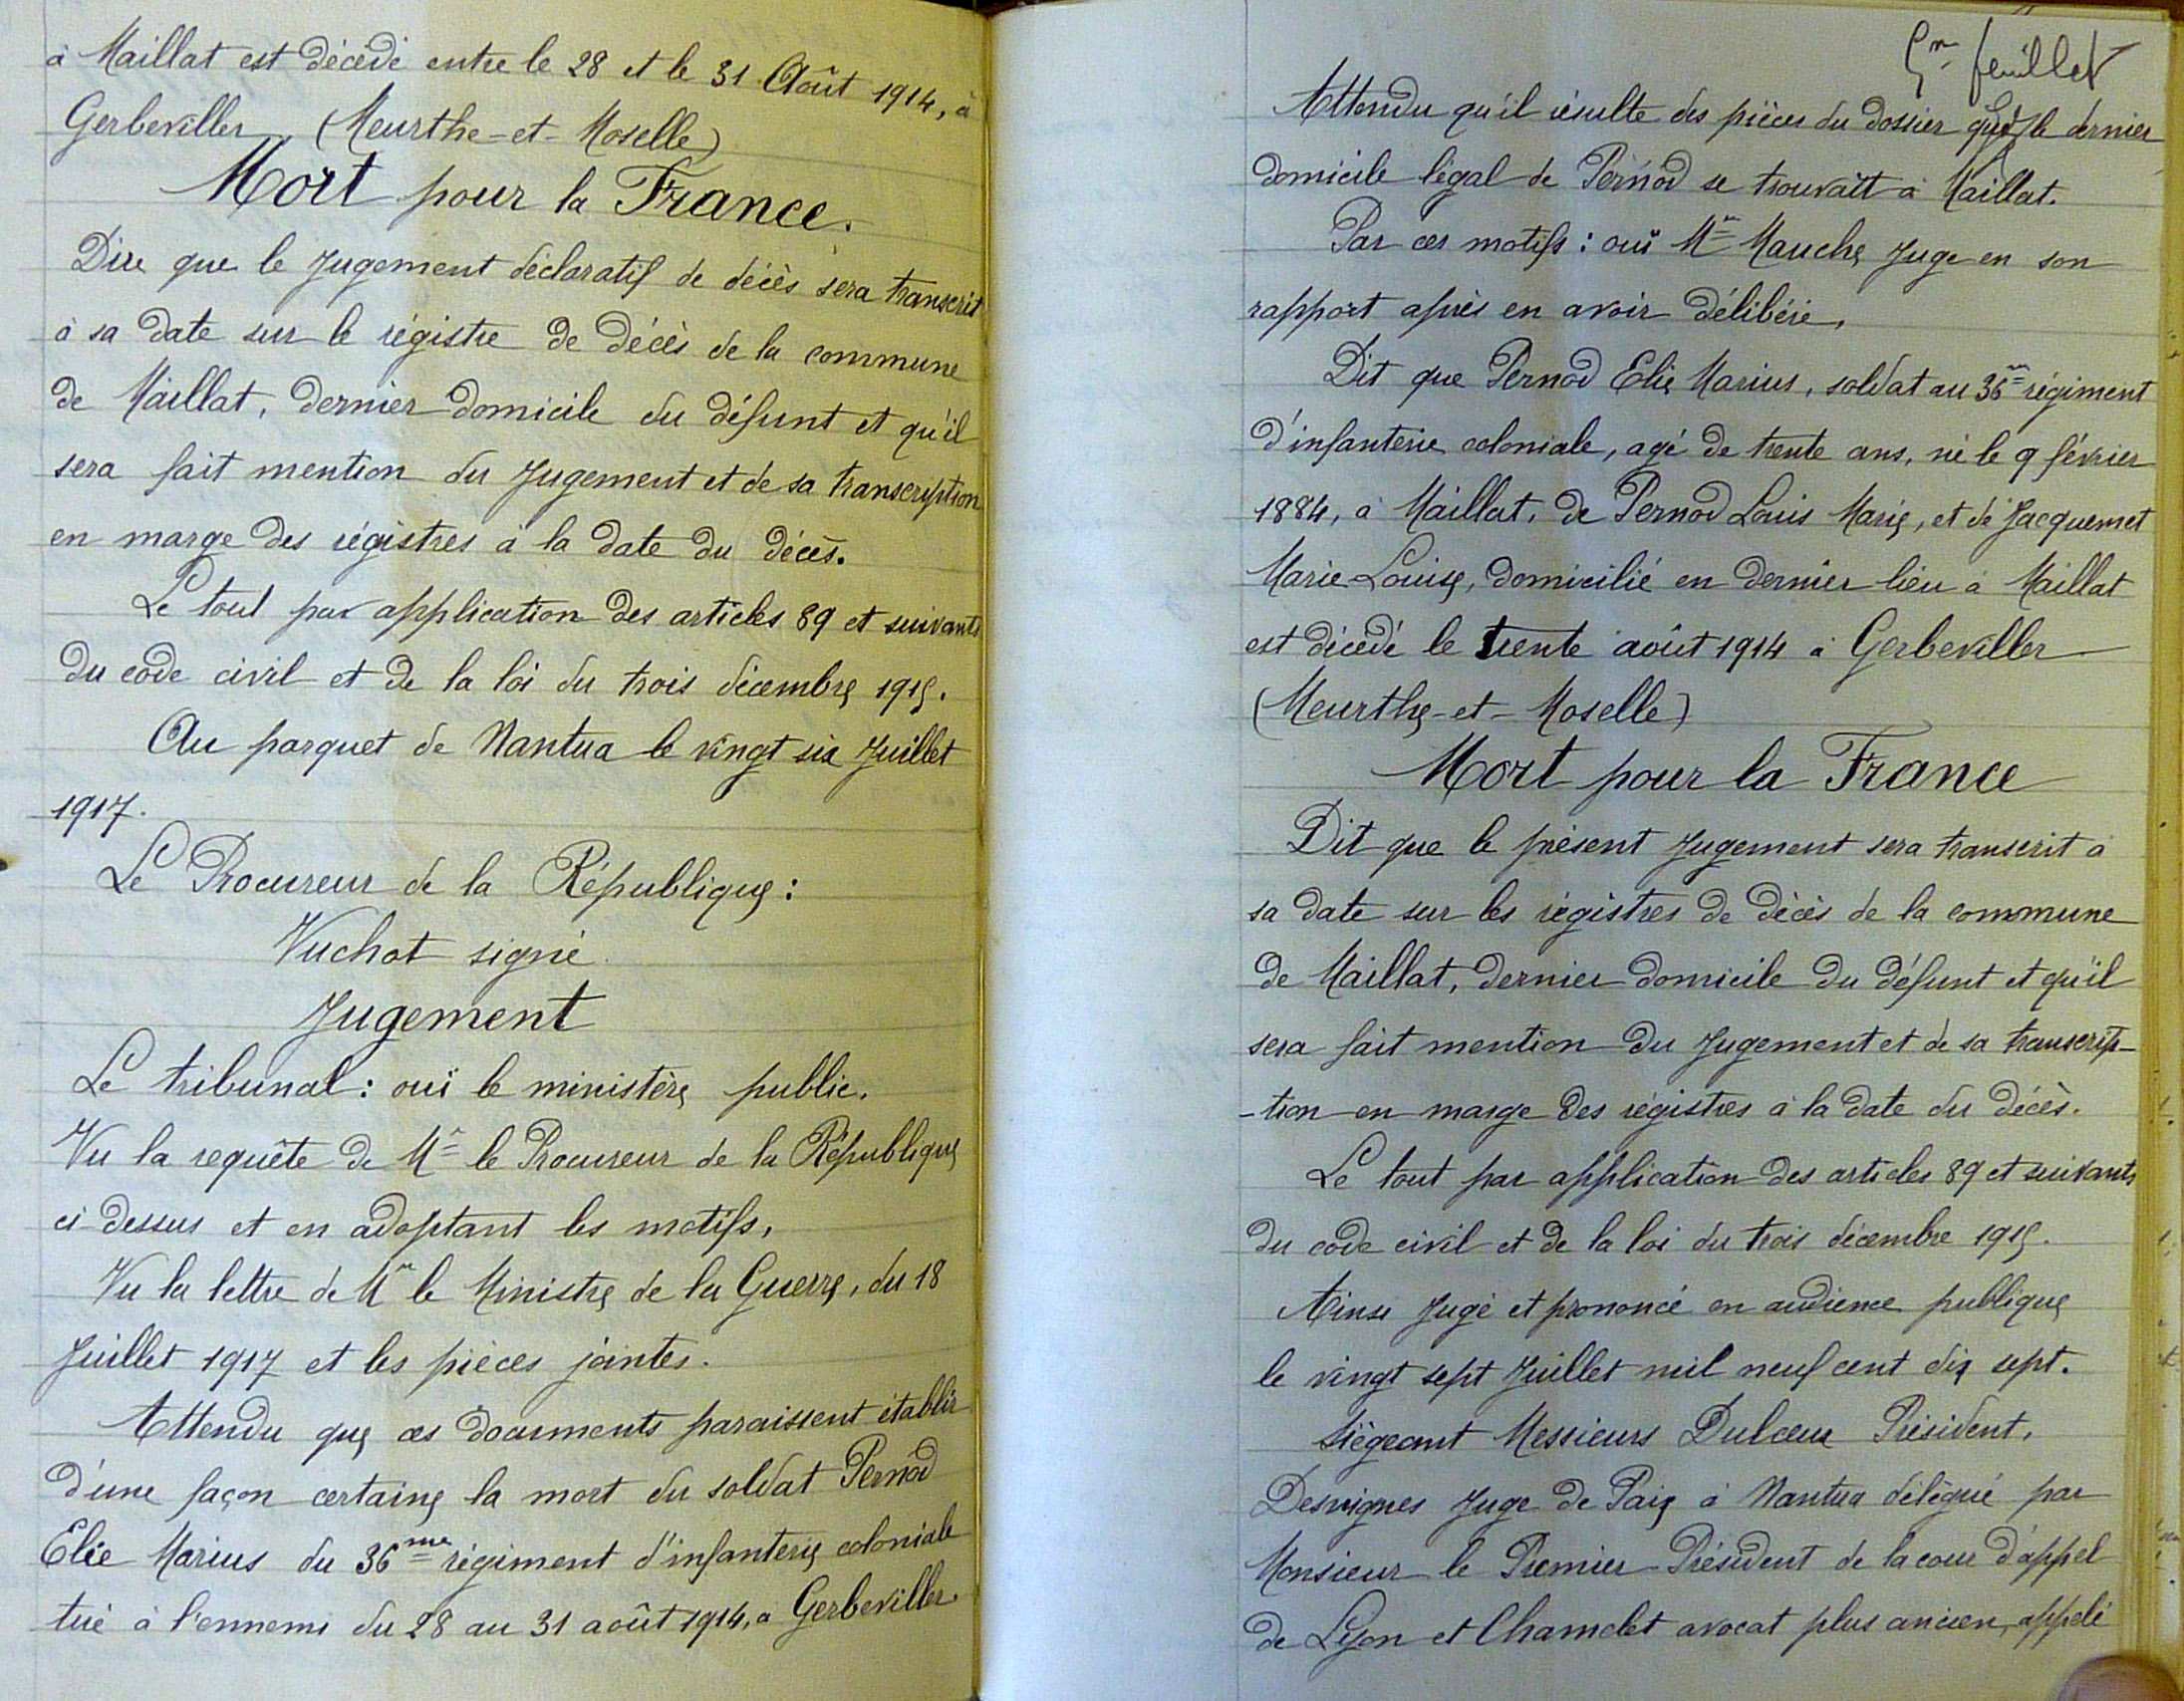 à Maillat est décédé entre le 28 et le 31 Août 1914, à
Gerbeviller (Meurthe-et-Moselle)
Mort pour la France.
Dire que le Jugement déclaratif de décès sera transcrit
à sa date sur le régistre de décès de la commune
de Maillat, dernier domicile du défunt et qu'il
sera fait mention du Jugement et de sa transcription
en marge des régistres à la date du décès.
Le tout par application des articles 89 et suivants
du code civil et de la loi du trois décembre 1915.
Au parquet de Nantua le vingt six Juillet
1917.
Le Procureur de la République :
Vuchot signé
Jugement
Le tribunal : ouï le ministère public.
Vu la requête de Mr le Procureur de la République
ci-dessus et en adoptant les motifs,
Vu la lettre de Mr le Ministre de la Guerre, du 18
Juillet 1917 et les pièces jointes.
Attendu que ces documents paraissent établir
d'une façon certaine la mort du soldat Pernod
Elie Marius du 36me régiment d'infanterie coloniale
tué à l'ennemi du 28 au 31 août 1914, à Gerbeviller.
5me feuillet
Attendu qu'il résulte des pièces du dossier que le dernier
domicile légal de Pernod se trouvait à Maillat.
Par ces motifs : ouï Mr Mauche Juge en son
rapport après en avoir délibéré,
Dit que Pernod Elie Marius, soldat au 36me régiment
d'infanterie coloniale, agé de trente ans, né le 9 février
1884, à Maillat, de Pernod Louis Marie, et de Jacquemet
Marie-Louise, domicilié en dernier lieu à Maillat
est décédé le trente août 1914 à Gerbeviller
(Meurthe-et-Moselle)
Mort pour la France
Dit que le présent Jugement sera transcrit à
sa date sur les régistres de décès de la commune
de Maillat, dernier domicile du défunt et qu'il
sera fait mention du Jugement et de sa transcrip-
-tion en marge des régistres à la date du décès.
Le tout par application des articles 89 et suivants
du code civil et de la loi du trois décembre 1915.
Ainsi Jugé et prononcé en audience publique
le vingt sept Juillet mil neuf cent dix sept.
Siégeant Messieurs Dulœur Président,
Desvignes Juge de Paix à Nantua délégué par
Monsieur le Premier Président de la cour d'appel
de Lyon et Chamelet avocat plus ancien, appelé